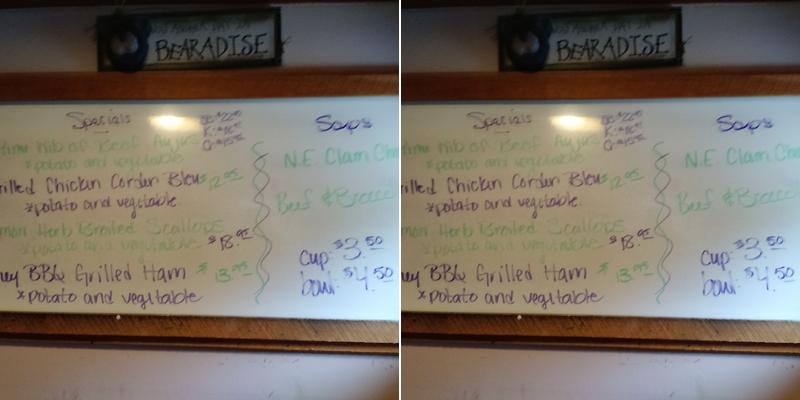 BEARADISE
Specials
Rib of Beef Au Jus
*potato and vegetable
Chicken Cordon Bleu $12.95
*potato and vegetable
Herb Broiled Scallops
*potato and vegetable $18.95
BBQ Grilled Ham $13.95
*potato and vegetable
Soups
N.E. Clam
Beef & Brocc
cup: $3.50
bowl: $4.50
BEARADISE
Specials
Rib of Beef Au Jus
*potato and vegetable
Chicken Cordon Bleu $12.95
*potato and vegetable
Herb Broiled Scallops
*potato and vegetable $18.95
BBQ Grilled Ham $13.95
*potato and vegetable
Soups
N.E. Clam
Beef & Brocc
cup: $3.50
bowl: $4.50